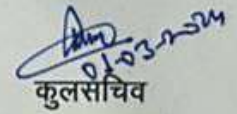 01-03-2024
कुलसचिव